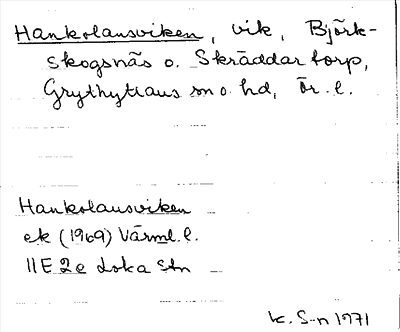 Hankolansviken, vik, Björk-
skogsnäs o. Skräddartorp,
Grythyttans sn o. hd, Ör. l.
Hankolansviken
ek (1969) Värml. l.
11E 2e Loka Stn
K. S-n 1971